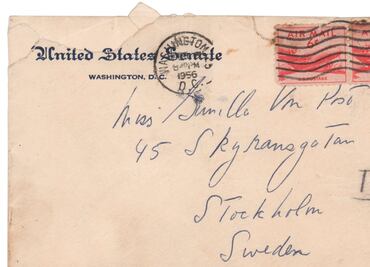 AIR MAIL
United States Senate
WASHINGTON, D.C.
WASHINGTON
1956
D.C.
Miss Gunilla Von Post
45 Skyransgatan
Stockholm
Sweden